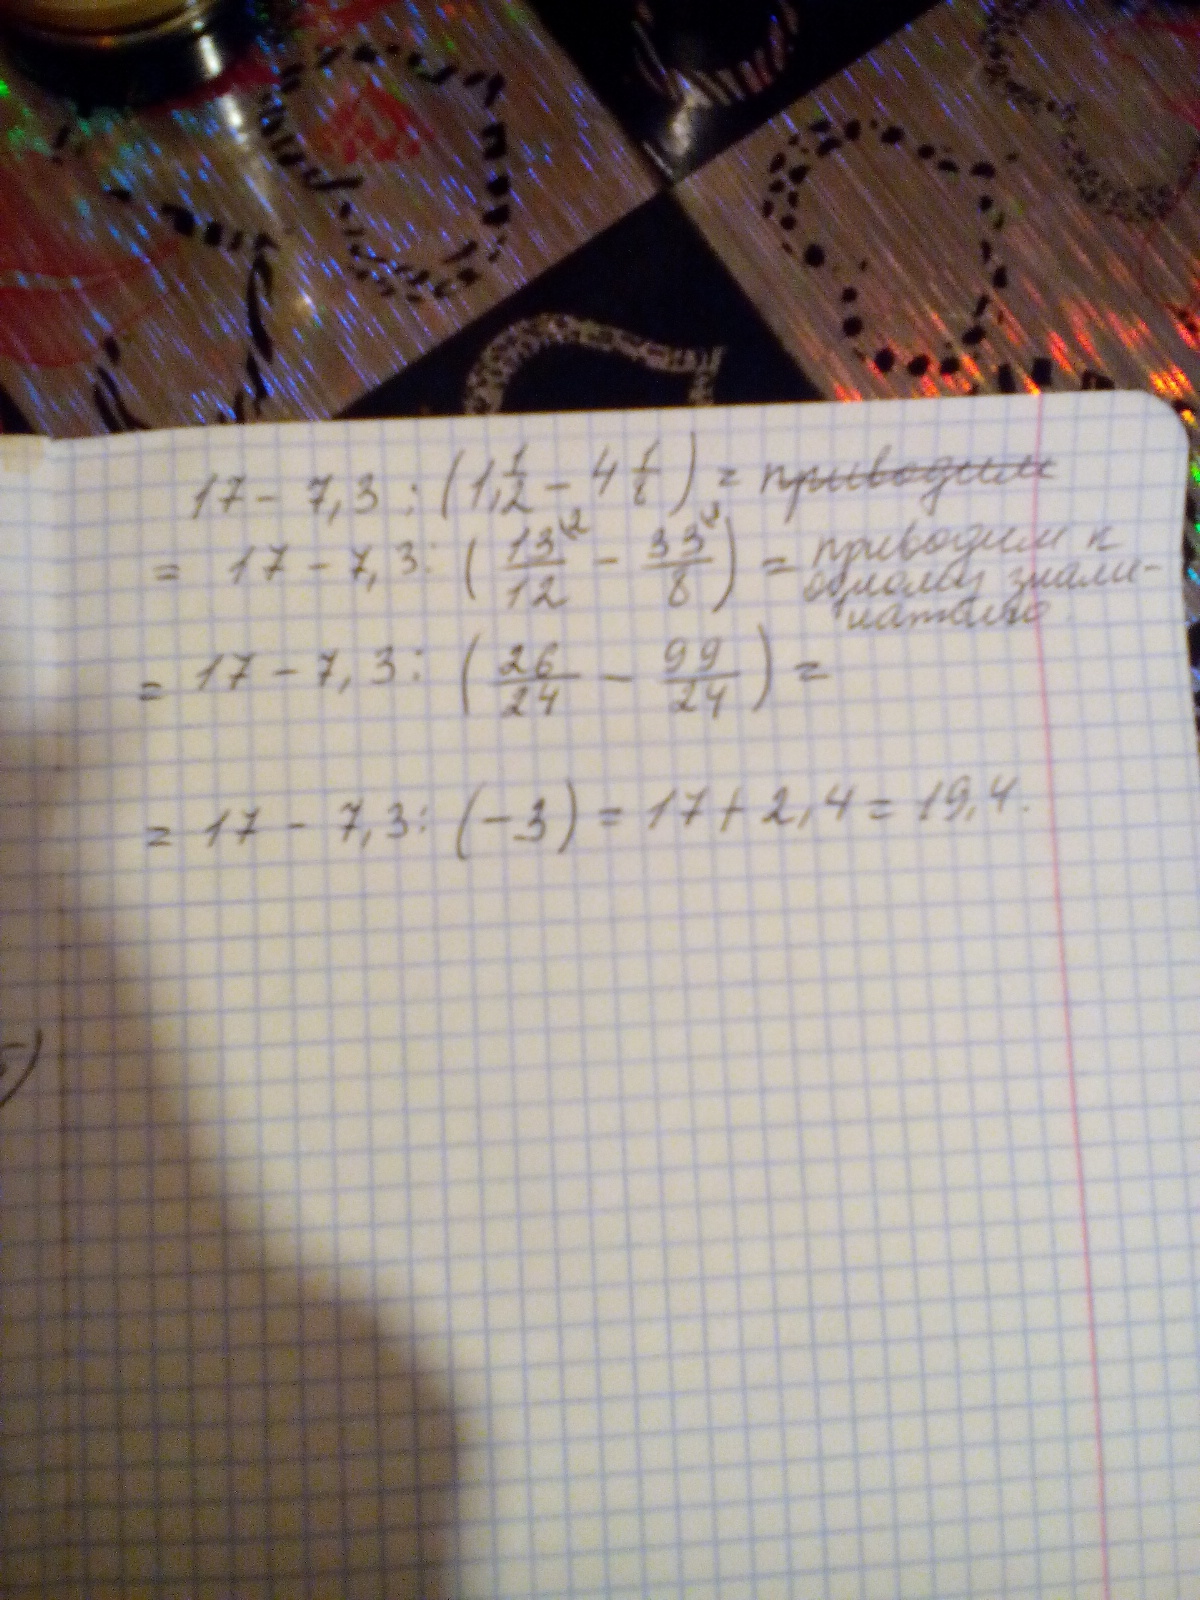 17 - 7,3 : (1 1/12 - 4 1/8) = приводим
= 17 - 7,3 : (13/12 \2 - 33/8 \3) = приводим к
одному знаме-
нателю
= 17 - 7,3 : (26/24 - 99/24) =
= 17 - 7,3 : (-3) = 17 + 2,4 = 19,4.